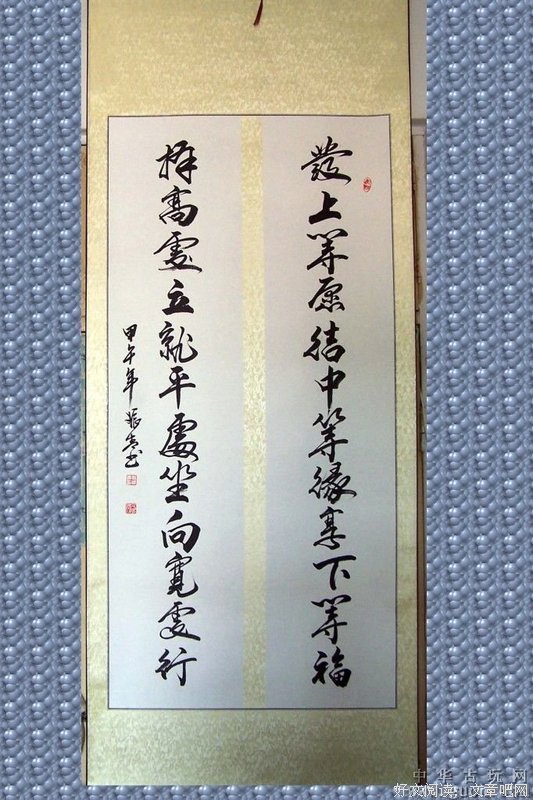 發上等愿结中等缘享下等福
择高處立就平處坐向寬處行
甲午年張书
中华古玩网
好文阅读，文章吧网